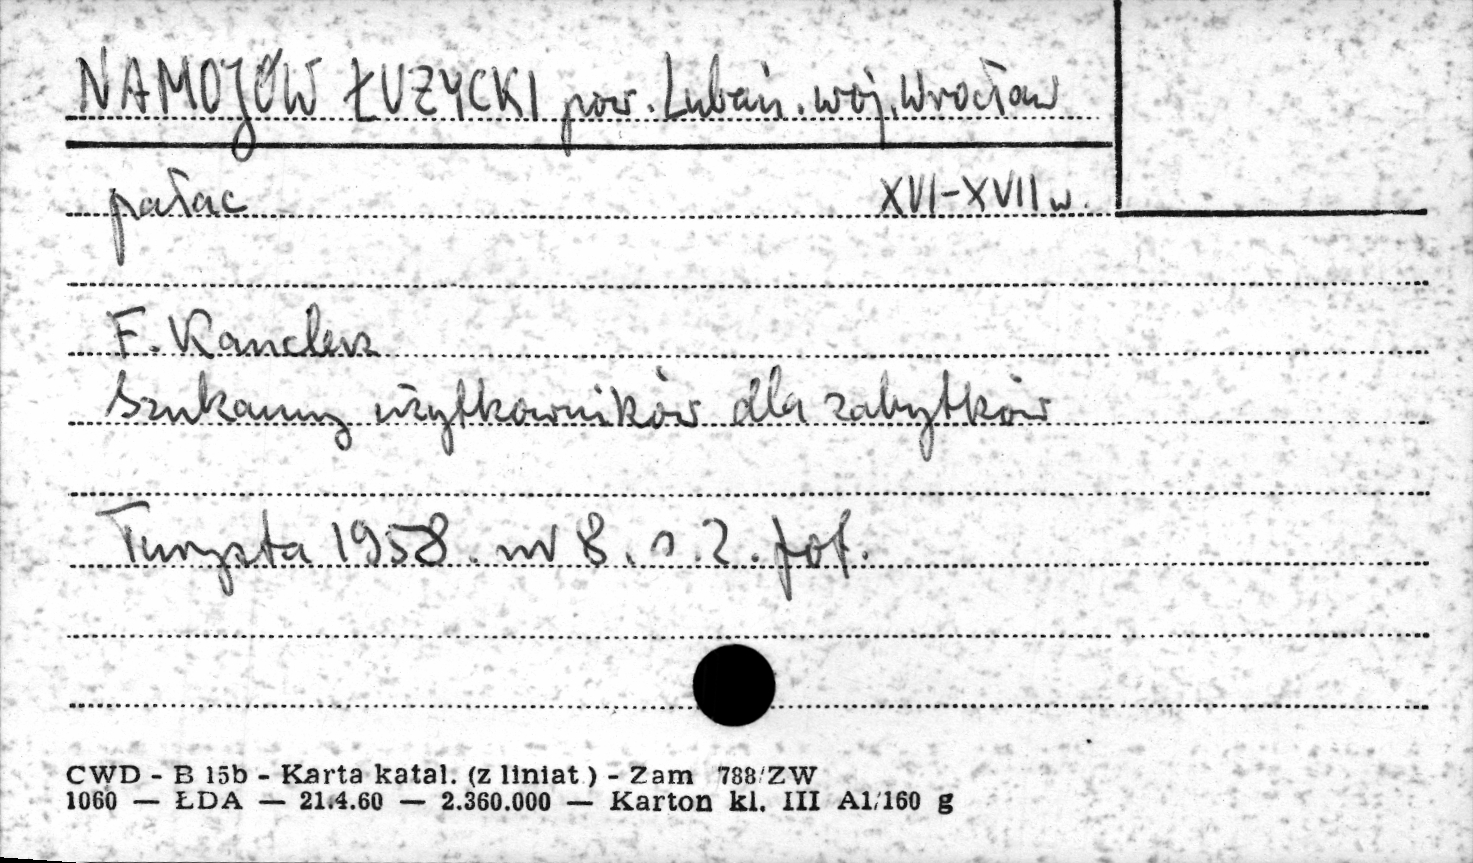 NAMOJÓW ŁUZYCKI pow. Lubań. woj. Wrocław
pałac XVI-XVII w.
F. Kanclerz
Szukamy użytkowników dla zabytków
Turysta 1958. nr 8. s. 2. fot.
CWD - B 15b - Karta katal. (z liniat.) - Zam 788/ZW
1060 — ŁDA — 21.4.60 — 2.360.000 — Karton kl. III A1/160 g